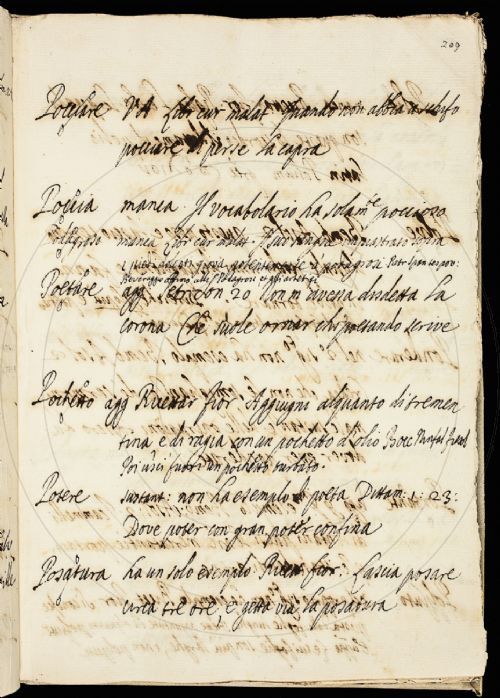 209
Pocciare VA Libr cur malat Quando non abbia a schifo
pocciare il per se la capra
Poccia manca. Il vocabolario ha solam.te poccioso
manca Libr cur malat.
Poetare agg. Petr son 20 Non m'avessa disdetta la
corona Che suole ornar chi poetando scrive
Pochetto agg Ricettar fior Aggiugni alquanto di tremen
tina e di ragia con un pochetto d'olio Bocc
Poi uscì fuori un pochetto turbato.
Potere sustant: non ha esempio di poeta Dittam: 1. 23:
Dove poter con gran poter confina
Posatura ha un solo esempio Ricett fior: Lascia posare
circa tre ore, e getta via la posatura